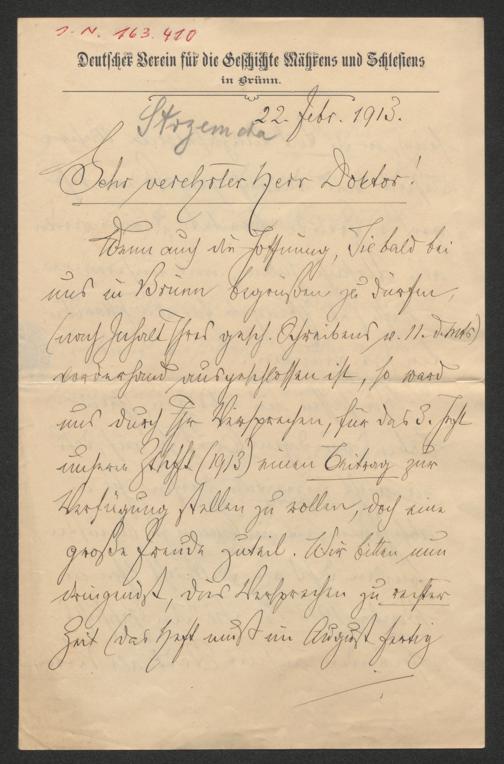 I. N. 163.410
Deutscher Verein für die Geschichte Mährens und Schlesiens
in Brünn.
Strzemcha
22. Febr. 1913.
Sehr verehrter Herr Doktor!
Wenn auch die Hoffnung, Sie bald bei
uns in Brünn begrüßen zu dürfen,
(nach Inhalt Ihres gesch. Schreibens v. 11. d. Mts)
vorderhand ausgeschlossen ist, so ward
uns durch Ihr Versprechen, für das 3. Heft
unserer Ztschft (1913) einen Beitrag zur
Verfügung stellen zu wollen, doch eine
große Freude zuteil. Wir bitten nun
dringendst, dies Versprechen zu rechter
Zeit (das Heft muß im August fertig